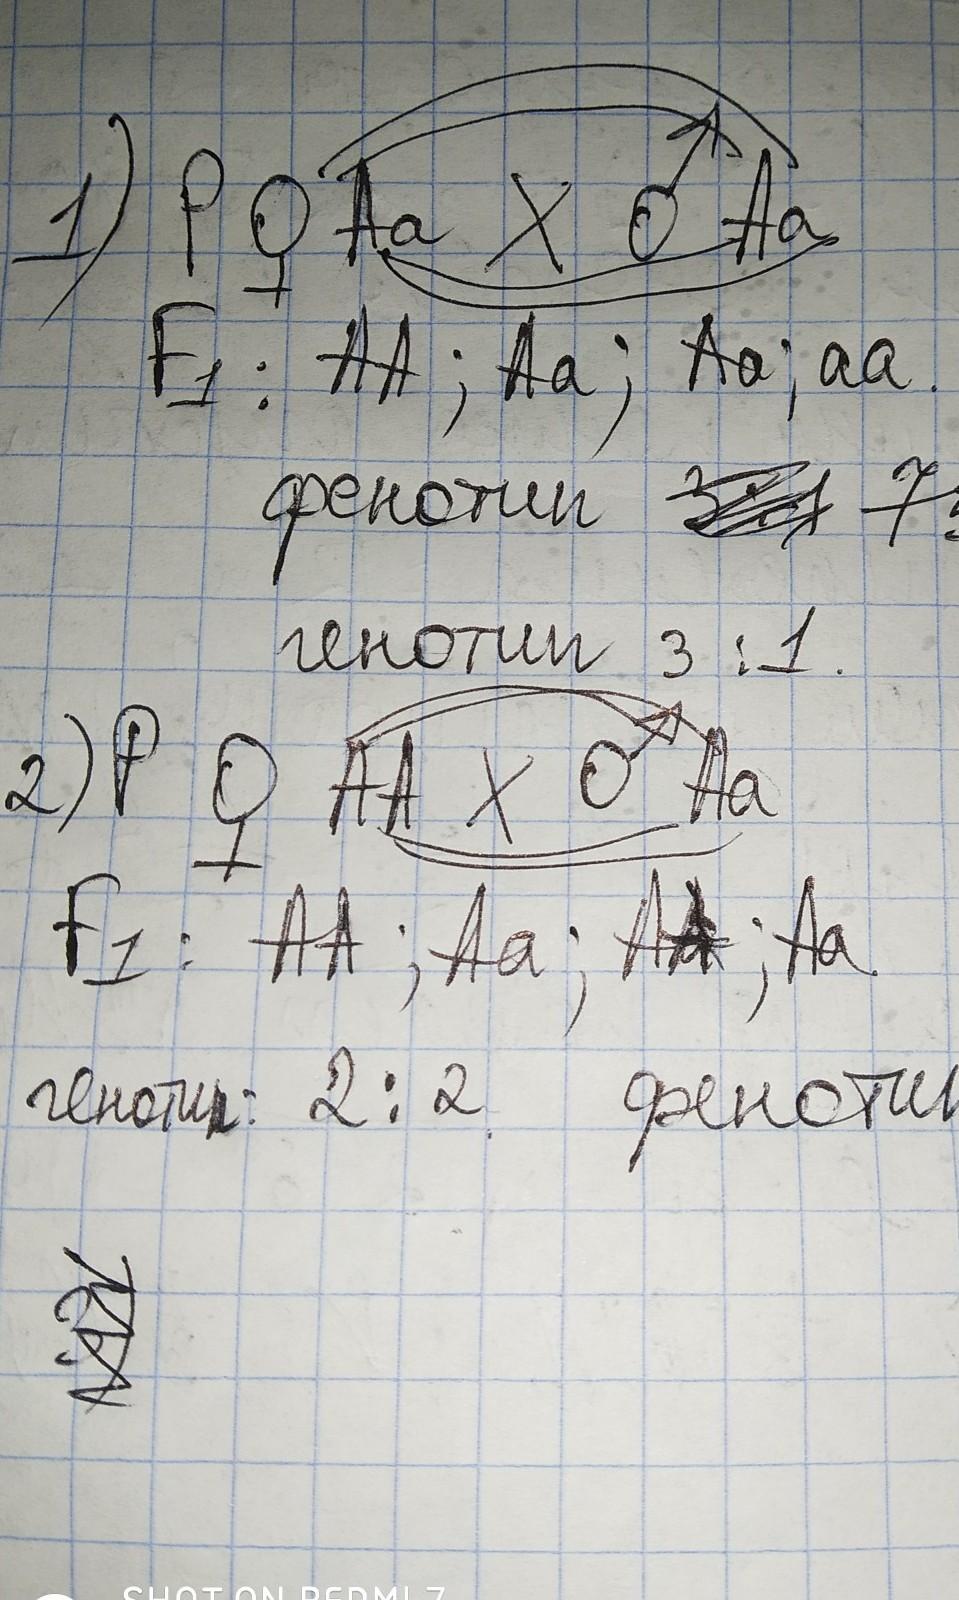 1) P ♀ Aa X ♂ Aa
F1: AA; Aa; Aa; aa.
фенотип 3:1 7
генотип 3:1.
2) P ♀ AA X ♂ Aa
F1: AA; Aa; AA; Aa.
генотип: 2:2. фенотип
SHOT ON REDMI 7